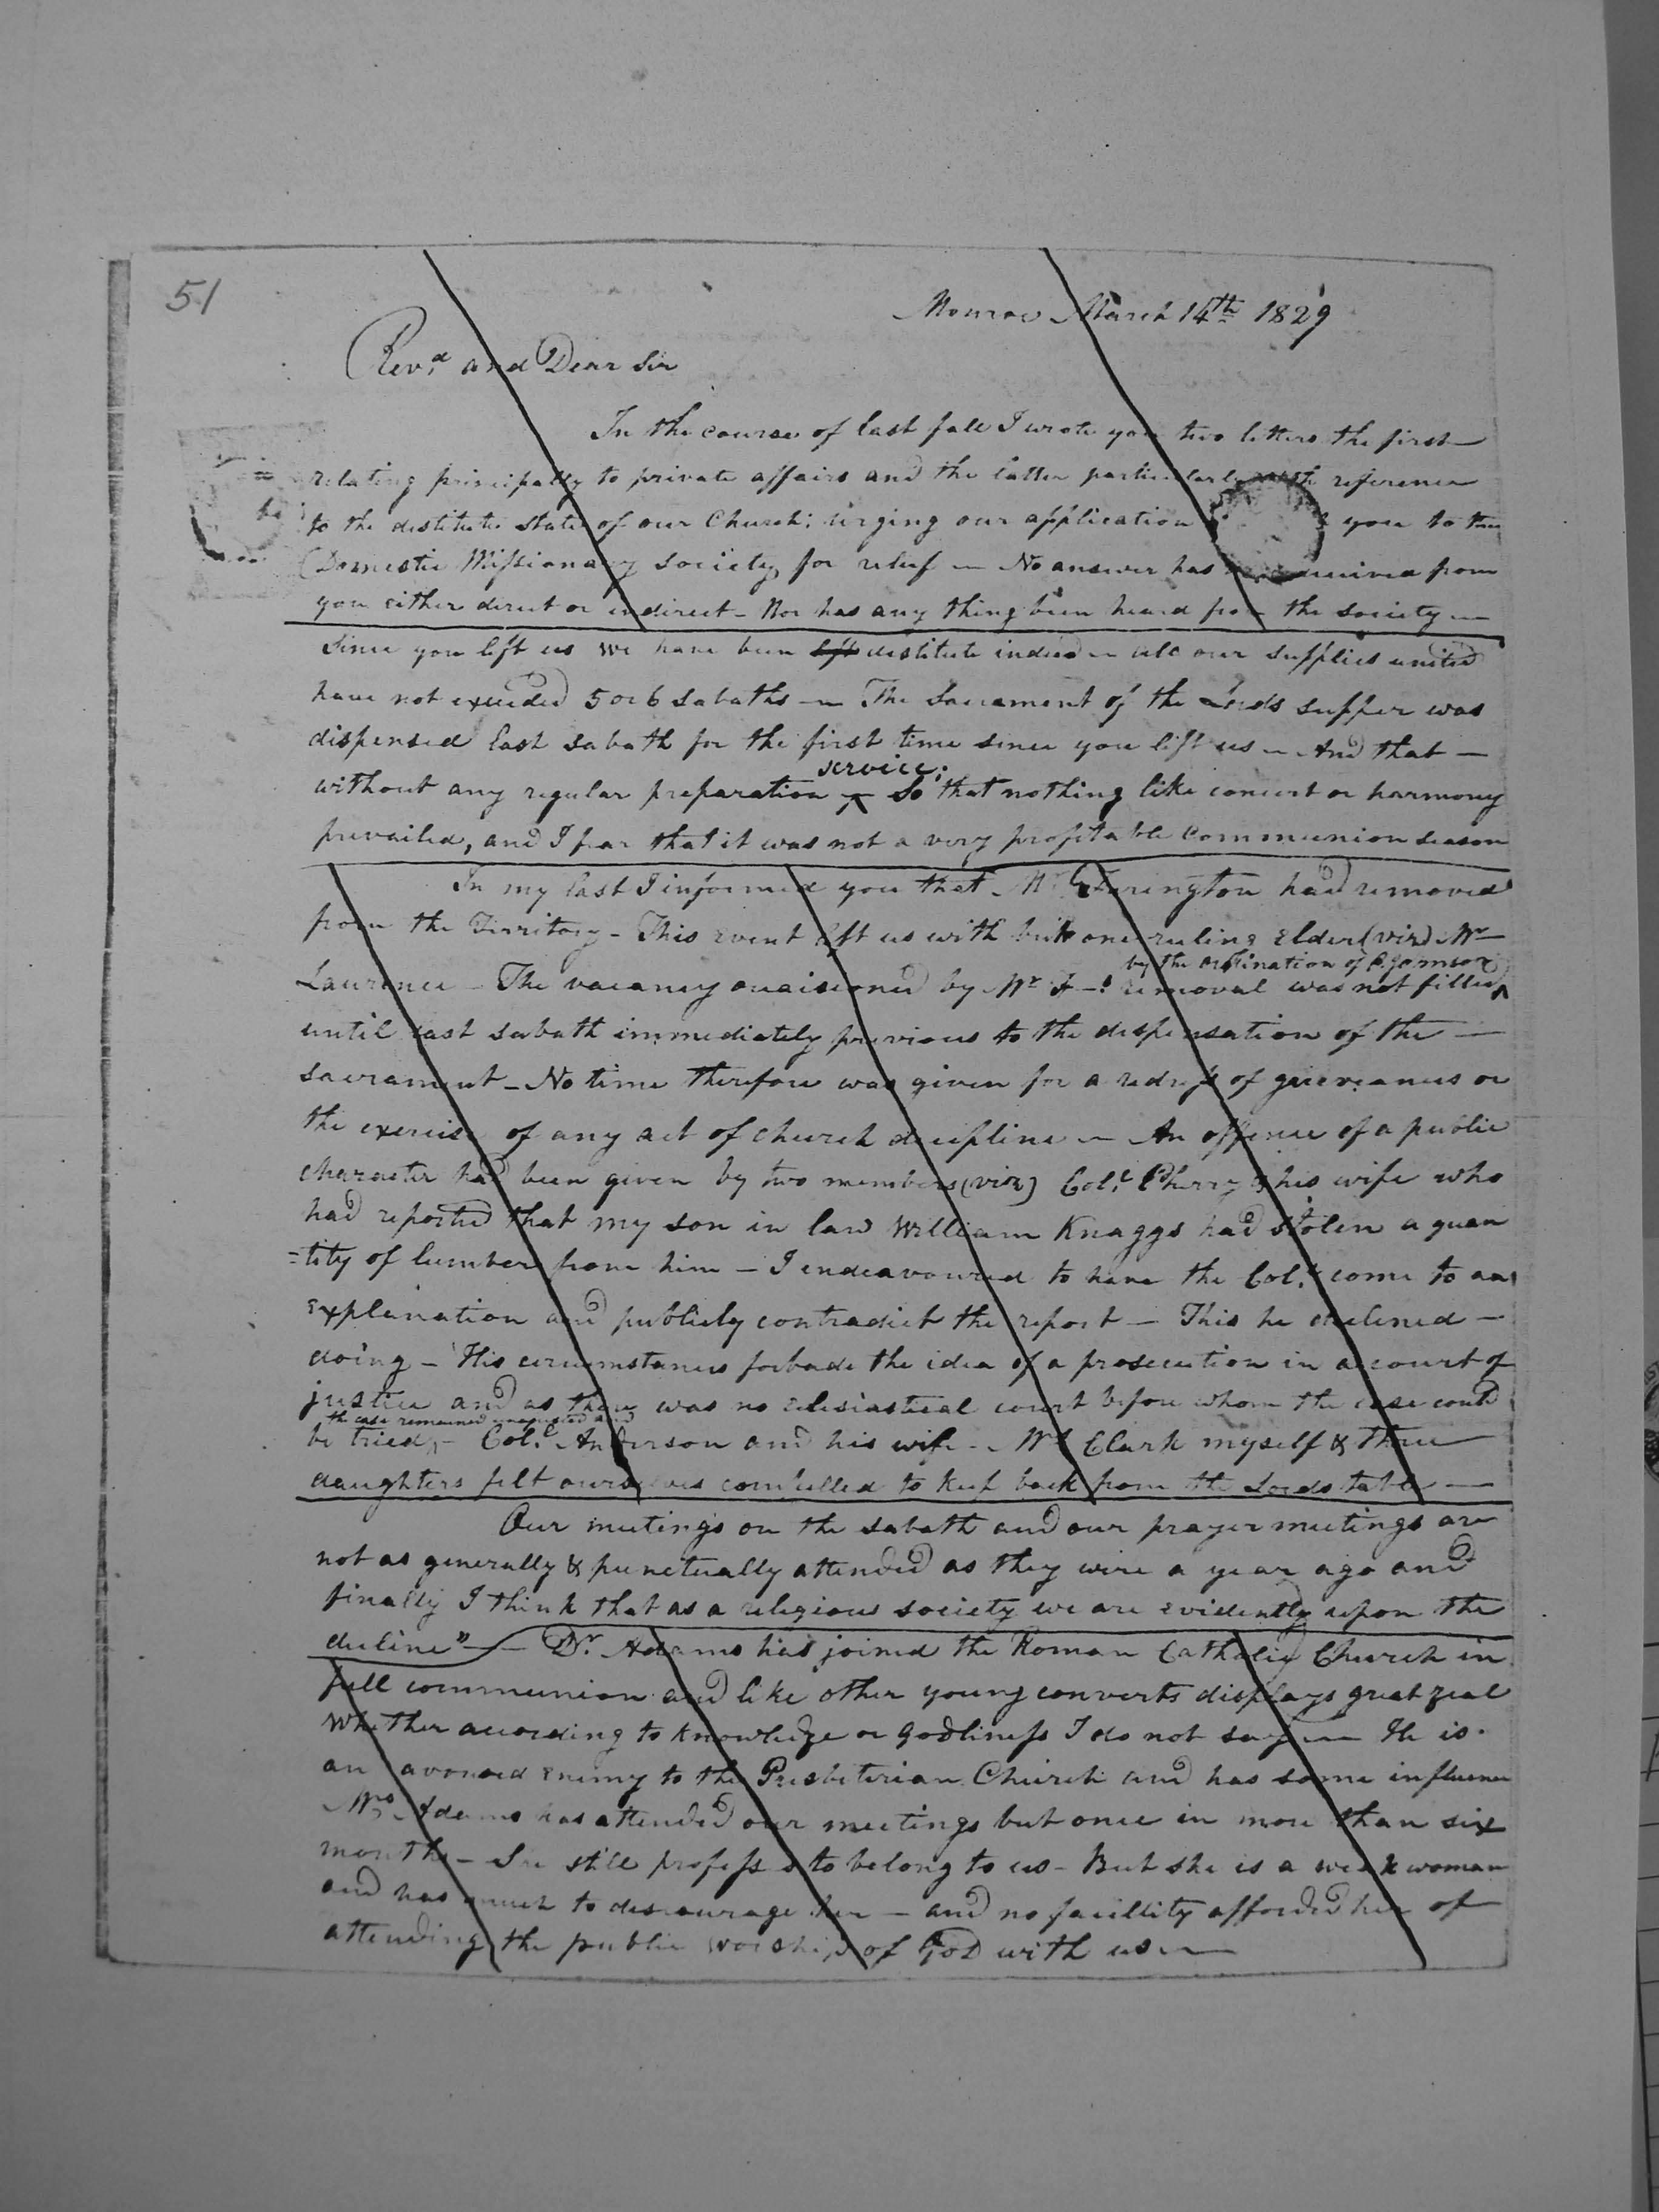 51
Monroe March 14th 1829
Revd and Dear Sir
In the course of last fall I wrote you two letters the first
relating principally to private affairs and the latter particularly with reference
to the destitute state of our Church; urging our application you to the
Domestic Missionary Society for relief — No answer has received from
you either direct or indirect - Nor has any thing been heard from the society —
Since you left us we have been left destitute indeed — all our supplies united
have not exceeded 5 or 6 Sabaths — The Sacrament of the Lords supper was
dispensed last sabath for the first time since you left us — And that —
service;
without any regular preparation — So that nothing like concert or harmony
prevailed, and I fear that it was not a very profitable Communion season
In my last I informed you that Mr had removed
from the Territory - This event left us with but one ruling Elder (viz) Mr
by the ordination of
Laurence - The vacancy occaisioned by Mr F-s removal was not filled
until last sabath immediately previous to the dispensation of the —
sacrament - No time therefore was given for a redress of grievances or
the exercise of any act of church decipline — An offence of a public
character had been given by two members (viz) Colo. & his wife who
had reported that my son in law William Knaggs had stolen a quan
=tity of lumber from him — I endeavoured to have the Colo. come to an
explanation and publicly contradict the report — This he declined —
doing - His circumstances forbade the idea of a prosecution in a court of
justice and as there was no eclesiastical court before whom the case could
the case remained and
be tried, - Colo. Anderson and his wife - Mrs Clark myself & three
daughters felt ourselves compelled to keep back from the Lords table —
Our meetings on the sabath and our prayer meetings are
not as generally & punctually attended as they were a year ago and
finally I think that as a religious society we are evidently upon the
decline" — Dr. Adams has joined the Roman Catholic Church in
full communion and like other young converts displays great zeal
Whether according to knowledge or Godliness I do not say — He is
an avowed enemy to the Presbiterian Church and has some influence
Mrs Adams has attended our meetings but once in more than six
months - She still professes to belong to us - But she is a weak woman
and has much to descourage her — and no facillity afforded her of
attending the public worship of God with us —